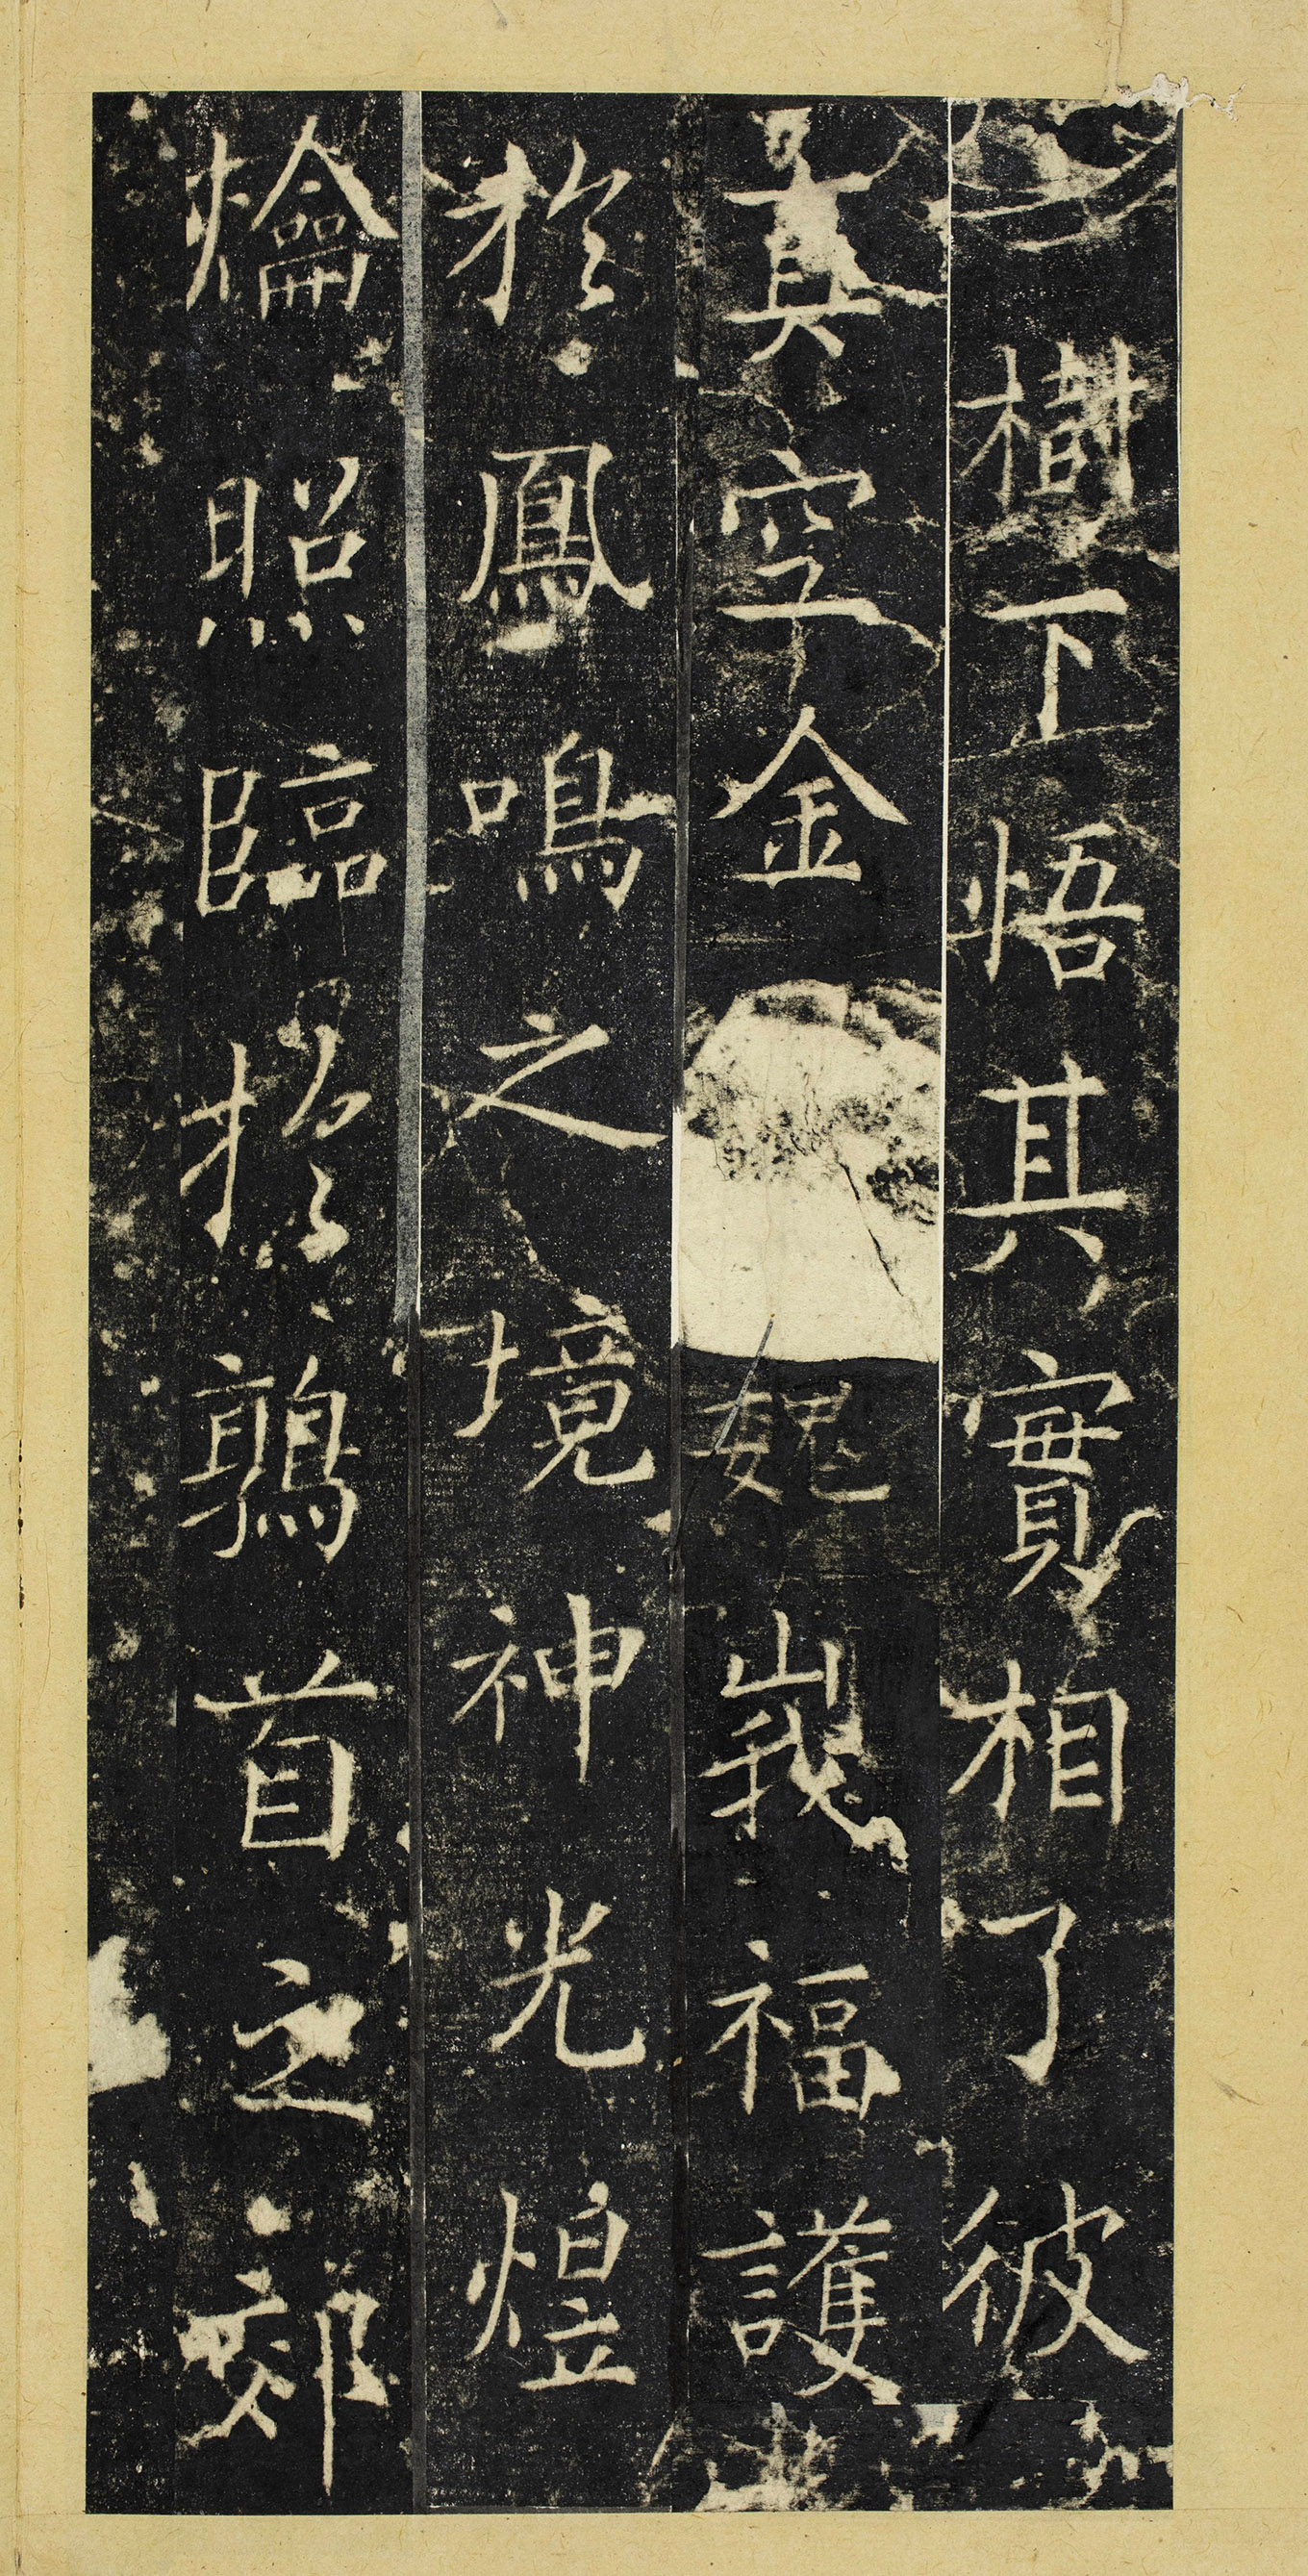 樹下悟其實相了彼
真空金巍峩福護
於鳳鳴之境神光煌
爚照臨於鶉首之郊